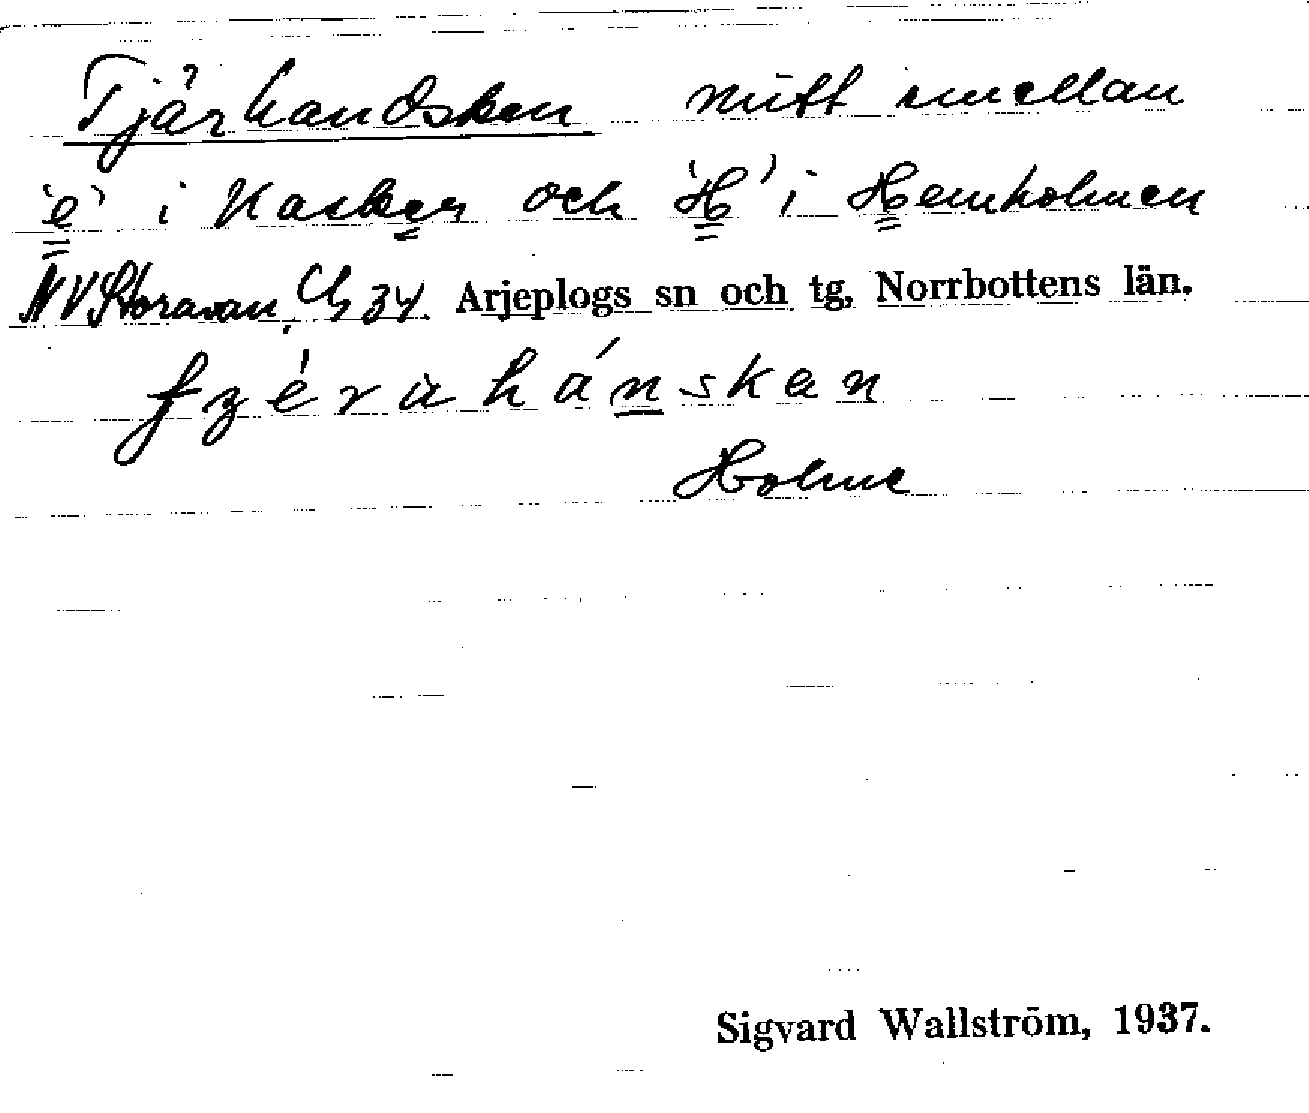 Tjärhandsken mitt emellan
'e' i Kasker och 'H' i Hemholmen
NV Storavan, Ch 34. Arjeplogs sn och tg, Norrbottens län.
hánsken
Holme
Sigvard Wallström, 1937.